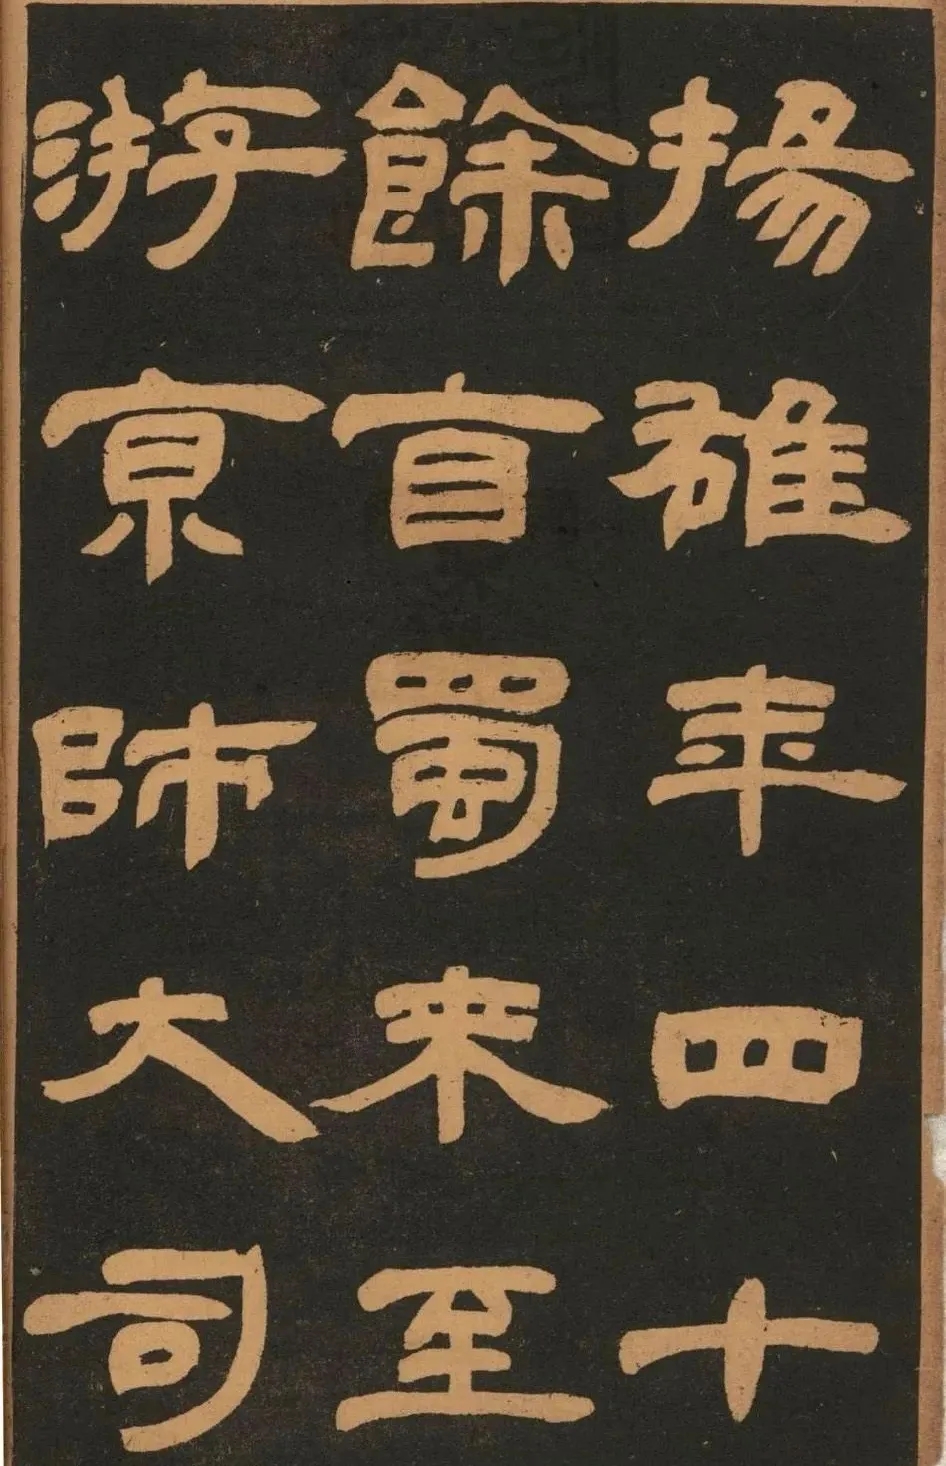 揚雄年四十
餘自蜀來至
游京師大司